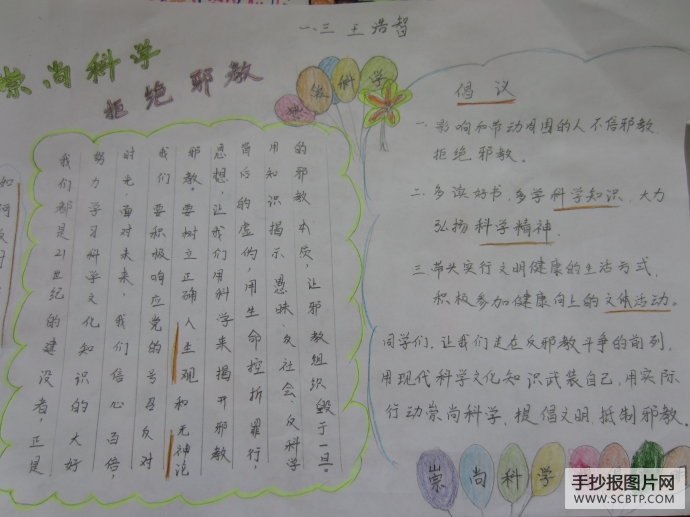 一.三 王浩智
崇尚科学
拒绝邪教
科学
我们都是21世纪的建设者,正是
努力学习科学文化知识的大好
时光面对未来,我们信心百倍,
我们要积极响应党的号召反对
邪教。要树立正确人生观和无神论
思想,让我们用科学来揭开邪教
背后的虚伪,用生命控折罪行,
用知识揭示愚昧、反社会、反科学
的邪教本质,让邪教组织毁于一旦。
倡议
一.影响和带动周围的人不信邪教
拒绝邪教。
二.多读好书,多学科学知识,大力
弘扬科学精神.
三.带头实行文明健康的生活方式,
积极参加健康向上的文体活动。
同学们,让我们走在反邪教斗争的前列,
用现代科学文化知识武装自己,用实际
行动崇尚科学,提倡文明,抵制邪教。
崇尚科学
手抄报图片网
WWW.SCBTP.COM